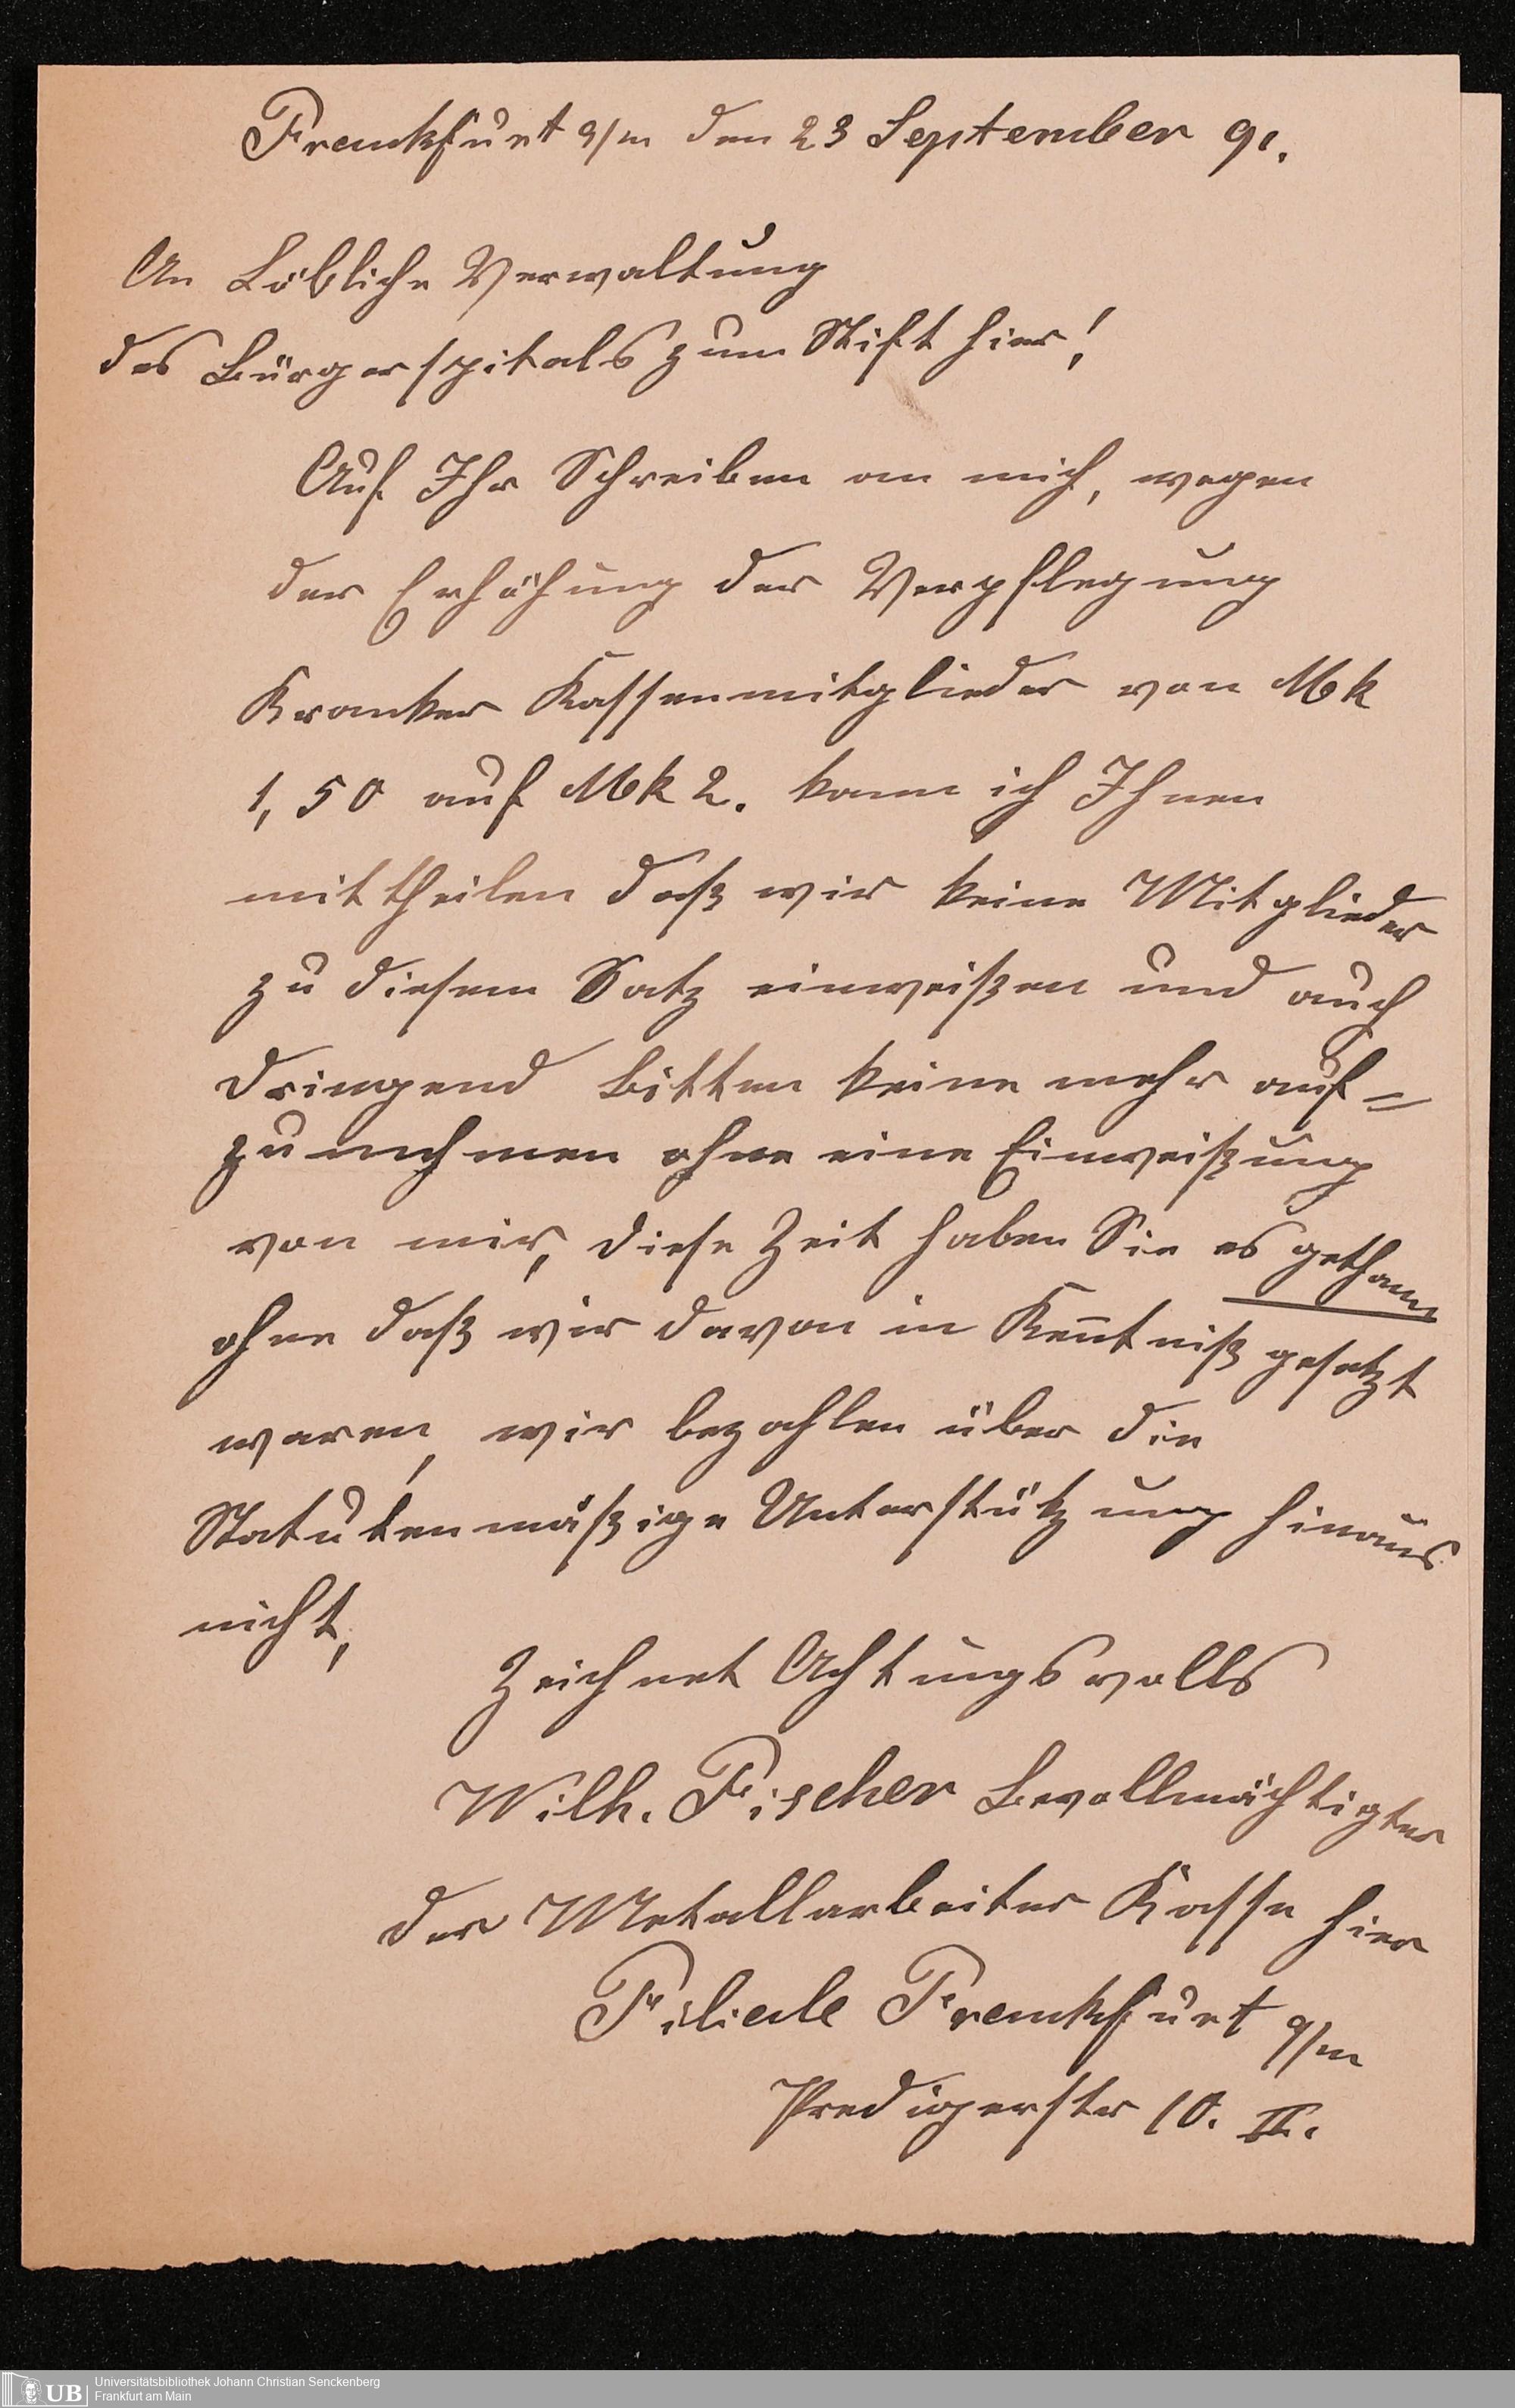 Frankfurt a/m den 23 September 91.
An Löbliche Verwaltung
des Bürgerspitals zum Stift hier!
Auf Ihr Schreiben an mich, wegen
der Erhöhung der Verpflegung
Kranker Kassenmitglieder von Mk
1,50 auf Mk 2. kann ich Ihnen
mittheilen daß wir keine Mitglieder
zu diesem Satz einweißen und auch
dringend bitten keine mehr auf=
zunehmen ohne eine Einweißung
von mir, diese Zeit haben Sie es gethann
ohne daß wir davon in Keñtniß gesetzt
waren, wir bezahlen über die
Statutenmäßige Unterstützung hinaus
nicht,
Zeichnet Achtungsvolls
Wilh. Fischer Bevollmächtigter
der Metallarbeiter Kasse hier
Filiale Frankfurt a/m
Predigerstr 10. II.
UB Universitätsbibliothek Johann Christian Senckenberg
Frankfurt am Main